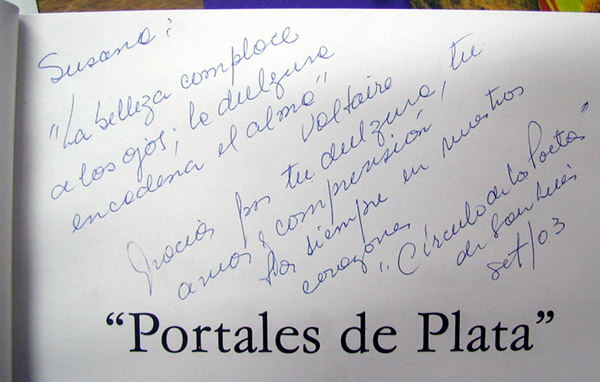 Susana:
"La belleza complace
a los ojos; la dulzura
encadena el alma"
Voltaire
Gracias por tu dulzura, tu
amor y comprensión
Por siempre en nuestros
corazones
"Círculo de los Poetas"
de San Luis
set/03
"Portales de Plata"